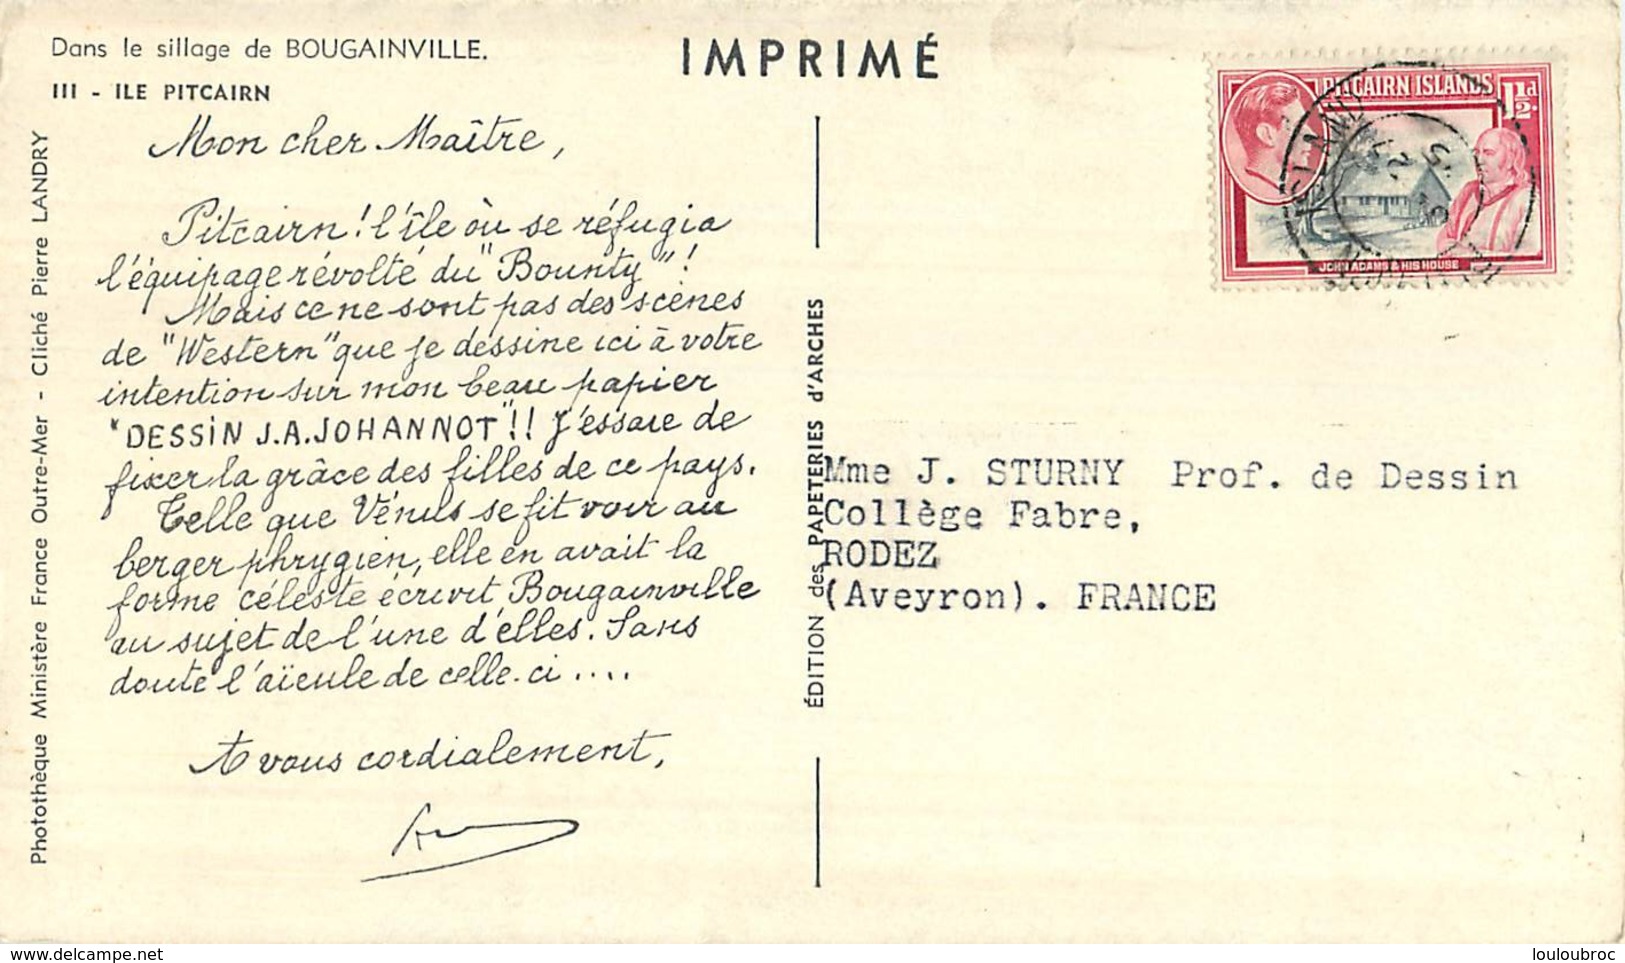 Dans le sillage de BOUGAINVILLE.
III - ILE PITCAIRN
IMPRIMÉ
Mon cher Maître,
Pitcairn ! l'île où se réfugia
l'équipage révolté du "Bounty" !
Mais ce ne sont pas des scènes
de "Western" que je dessine ici à votre
intention sur mon beau papier
"DESSIN J.A.JOHANNOT" !! J'essaie de
fixer la grâce des filles de ce pays.
Telle que Vénus se fit voir au
berger phrygien, elle en avait la
forme céleste écrivit Bougainville
au sujet de l'une d'elles. Sans
doute l'aïeule de celle-ci ....
A vous cordialement,
Photothèque Ministère France Outre-Mer - Cliché Pierre LANDRY
ÉDITION des PAPETERIES d'ARCHES
PITCAIRN ISLANDS
1½d.
JOHN ADAMS & HIS HOUSE
Mme J. STURNY Prof. de Dessin
Collège Fabre,
RODEZ
(Aveyron). FRANCE
delcampe.net
louloubroc